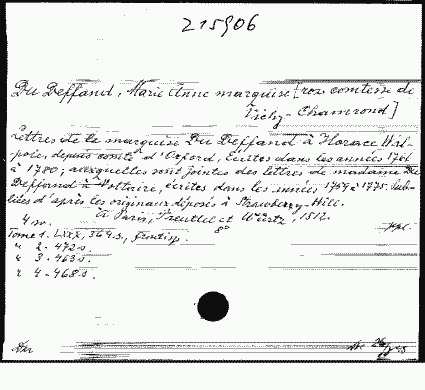 215906
Du Deffand, Marie Anne marquise [née comtesse de
Vichy-Chamrond]
Lettres de la marquise Du Deffand à Horace Wal-
pole, depuis comte d'Orford, écrites dans les années 1766
à 1780; auxquelles sont jointes des lettres de madame Du
Deffand à Voltaire, écrites dans les années 1759 à 1775. Pub-
liées d'après les originaux déposés à Strawberry-Hill.
À Paris, Treuttel et Würtz, 1812.
4 m. 8°
Tome 1. LXXX, 364 s., frontisp.
" 2 - 472 s.
" 3 - 463 s.
" 4 - 468 s.
Du